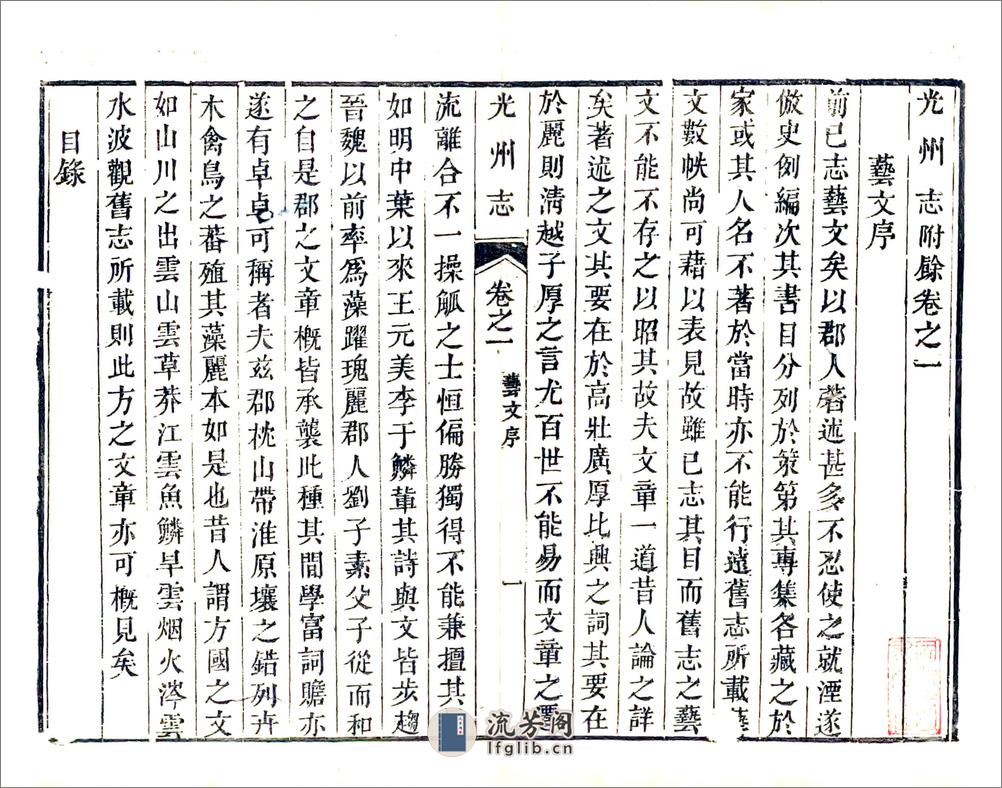 光州志附餘卷之一
藝文序
前已志藝文矣以郡人著述甚多不忍使之就湮遂
倣史例編次其書目分列於策第其專集各藏之於
家或其人名不著於當時亦不能行遠舊志所載藝
文數帙尚可藉以表見故雖已志其目而舊志之藝
文不能不存之以昭其故夫文章一道昔人論之詳
矣著述之文其要在於高壯廣厚比興之詞其要在
於麗則清越子厚之言尤百世不能易而文章之源
光州志
卷之一
藝文序
一
流離合不一操觚之士恒偏勝獨得不能兼擅其
如明中葉以來王元美李于鱗輩其詩與文皆步趨
晉魏以前率爲藻躍瑰麗郡人劉子素父子從而和
之自是郡之文章概皆承襲此種其間學富詞贍亦
遂有卓卓可稱者夫兹郡枕山帶淮原壤之錯列卉
木禽鳥之蕃殖其藻麗本如是也昔人謂方國之文
如山川之出雲山雲草莽江雲魚鱗旱雲烟火涔雲
水波觀舊志所載則此方之文章亦可概見矣
目錄
流芳阁
lfglib.cn